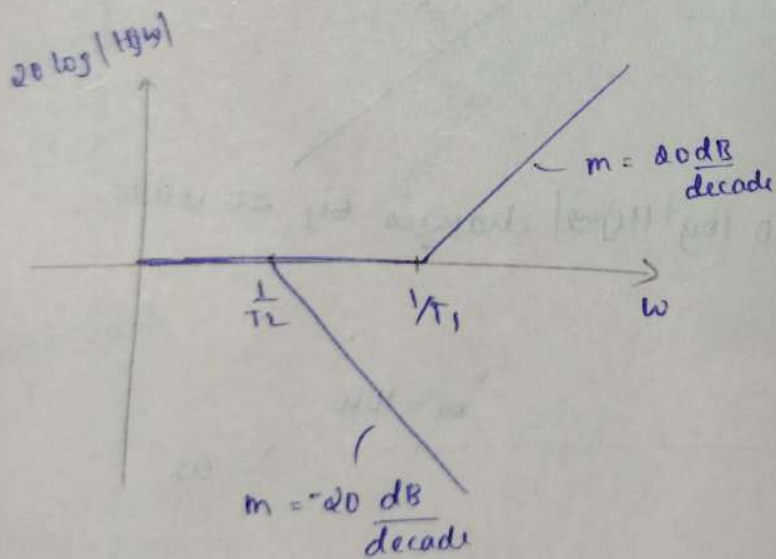 20 log |H(jω)|
m = 20 dB
decade
1
T2
1/T1
ω
m = -20 dB
decade